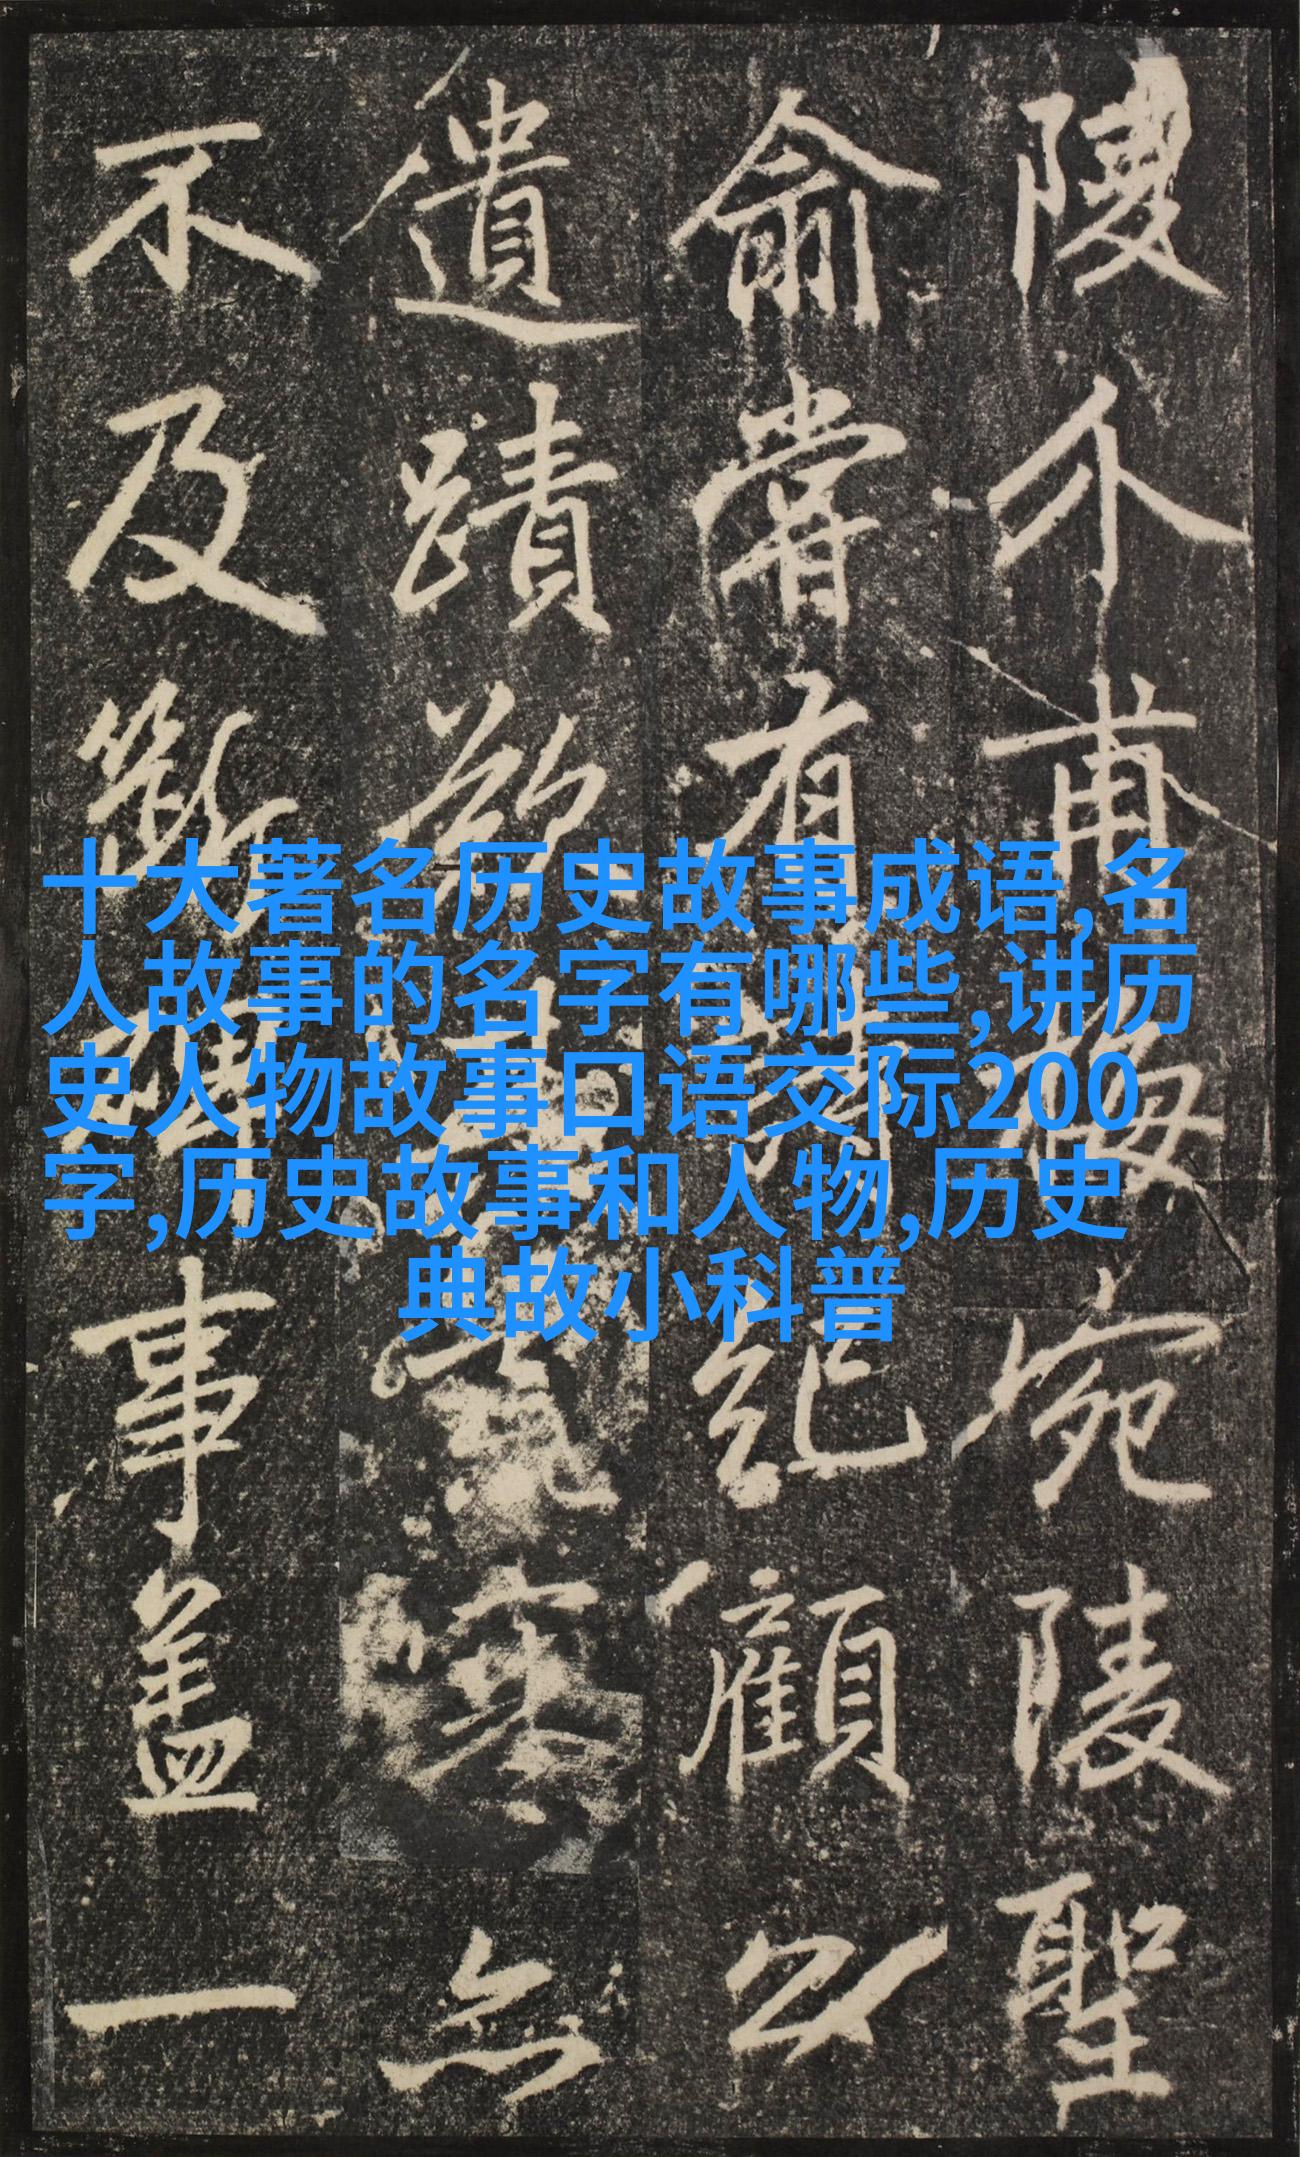 十大著名历史故事成语,名
人故事的名字有哪些,讲历
史人物故事口语交际200
字,历史故事和人物,历史
典故小科普
陵介甫梅宛陵聖
俞嘗有詩紀顧公
遺蹟
不及斷碑事蓋一